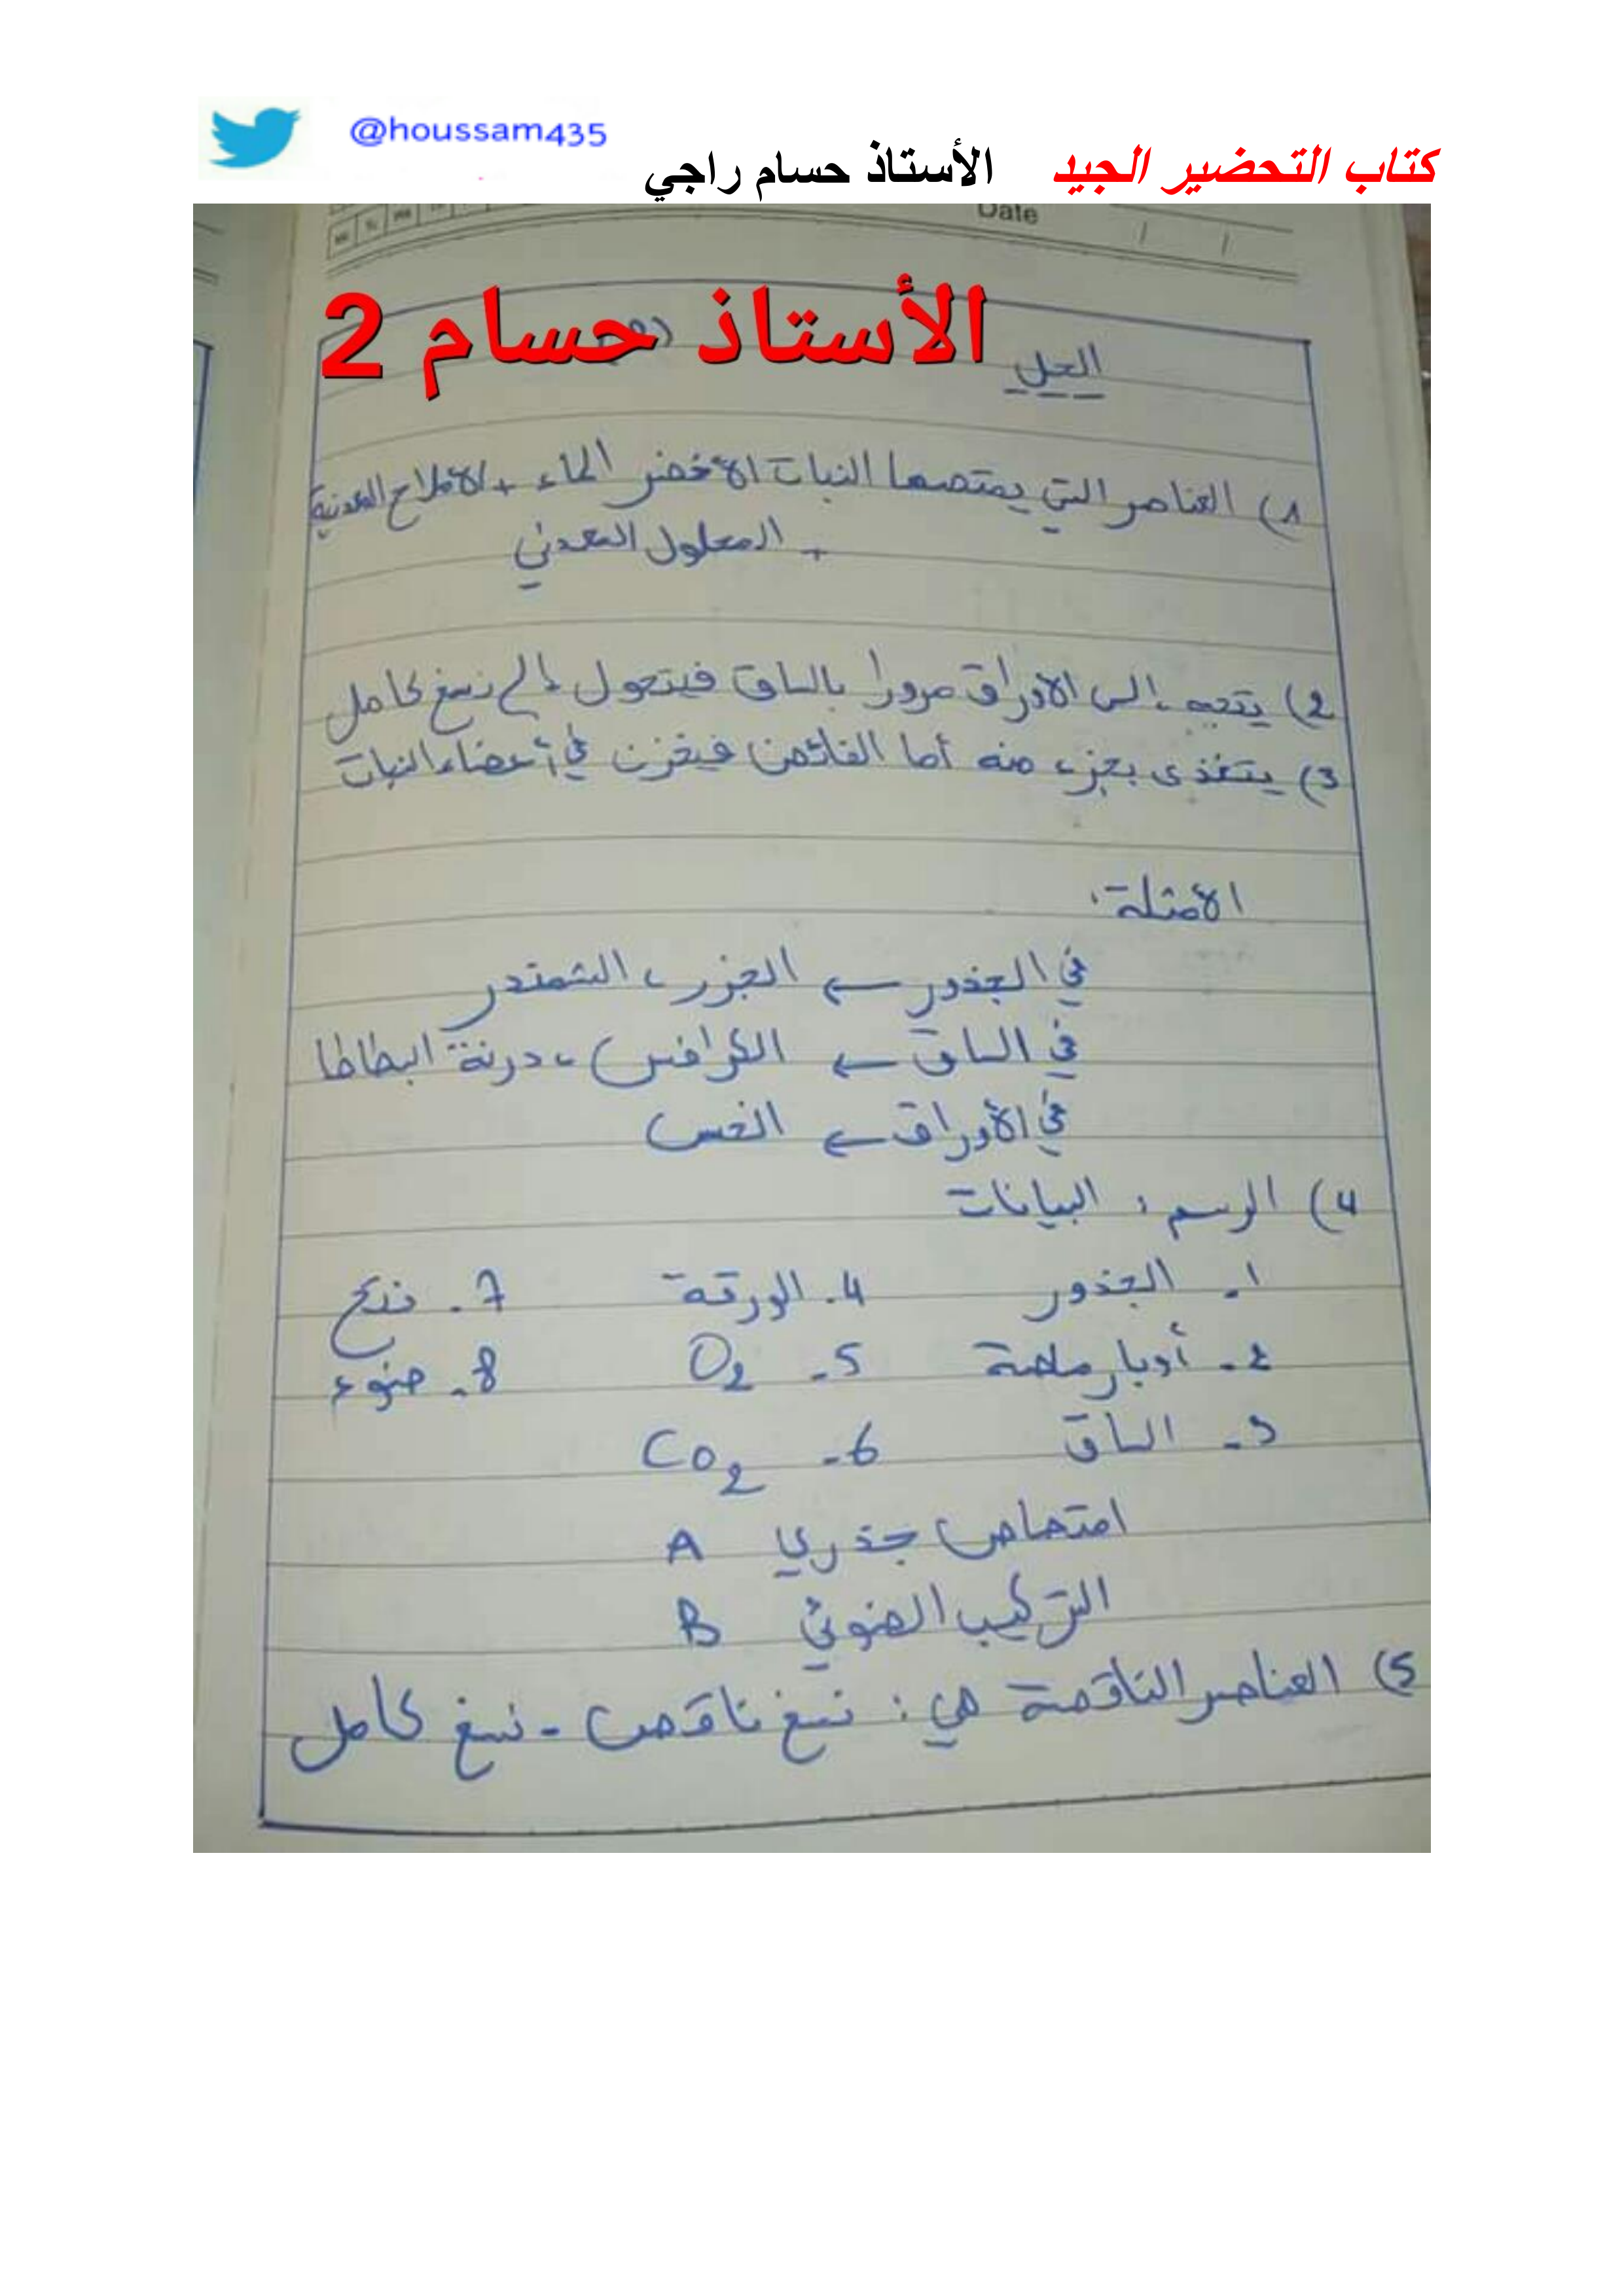 @houssam435
كتاب التحضير الجيد الأستاذ حسام راجي
Date
الأستاذ حسام 2
الحل
1) العناصر التي يمتصها النبات الأخضر الماء + الأملاح المعدنية
+ المحلول المعدني
2) يتجه إلى الأوراق مرورا بالساق فيتحول إلى نسغ كامل
3) يتغذى بجزء منه أما الفائض فيخزن في أعضاء النبات
الأمثلة:
في الجذور ← الجزر، الشمندر
في الساق ← الكرافس، درنة البطاطا
في الأوراق ← الخس
4) الرسم: البيانات
1- الجذور 4- الورقة 7- نتح
2- أوبار ماصة 5- O2 8- ضوء
3- الساق 6- CO2
امتصاص جذري A
التركيب الضوئي B
5) العناصر الناقصة هي: نسغ ناقص - نسغ كامل